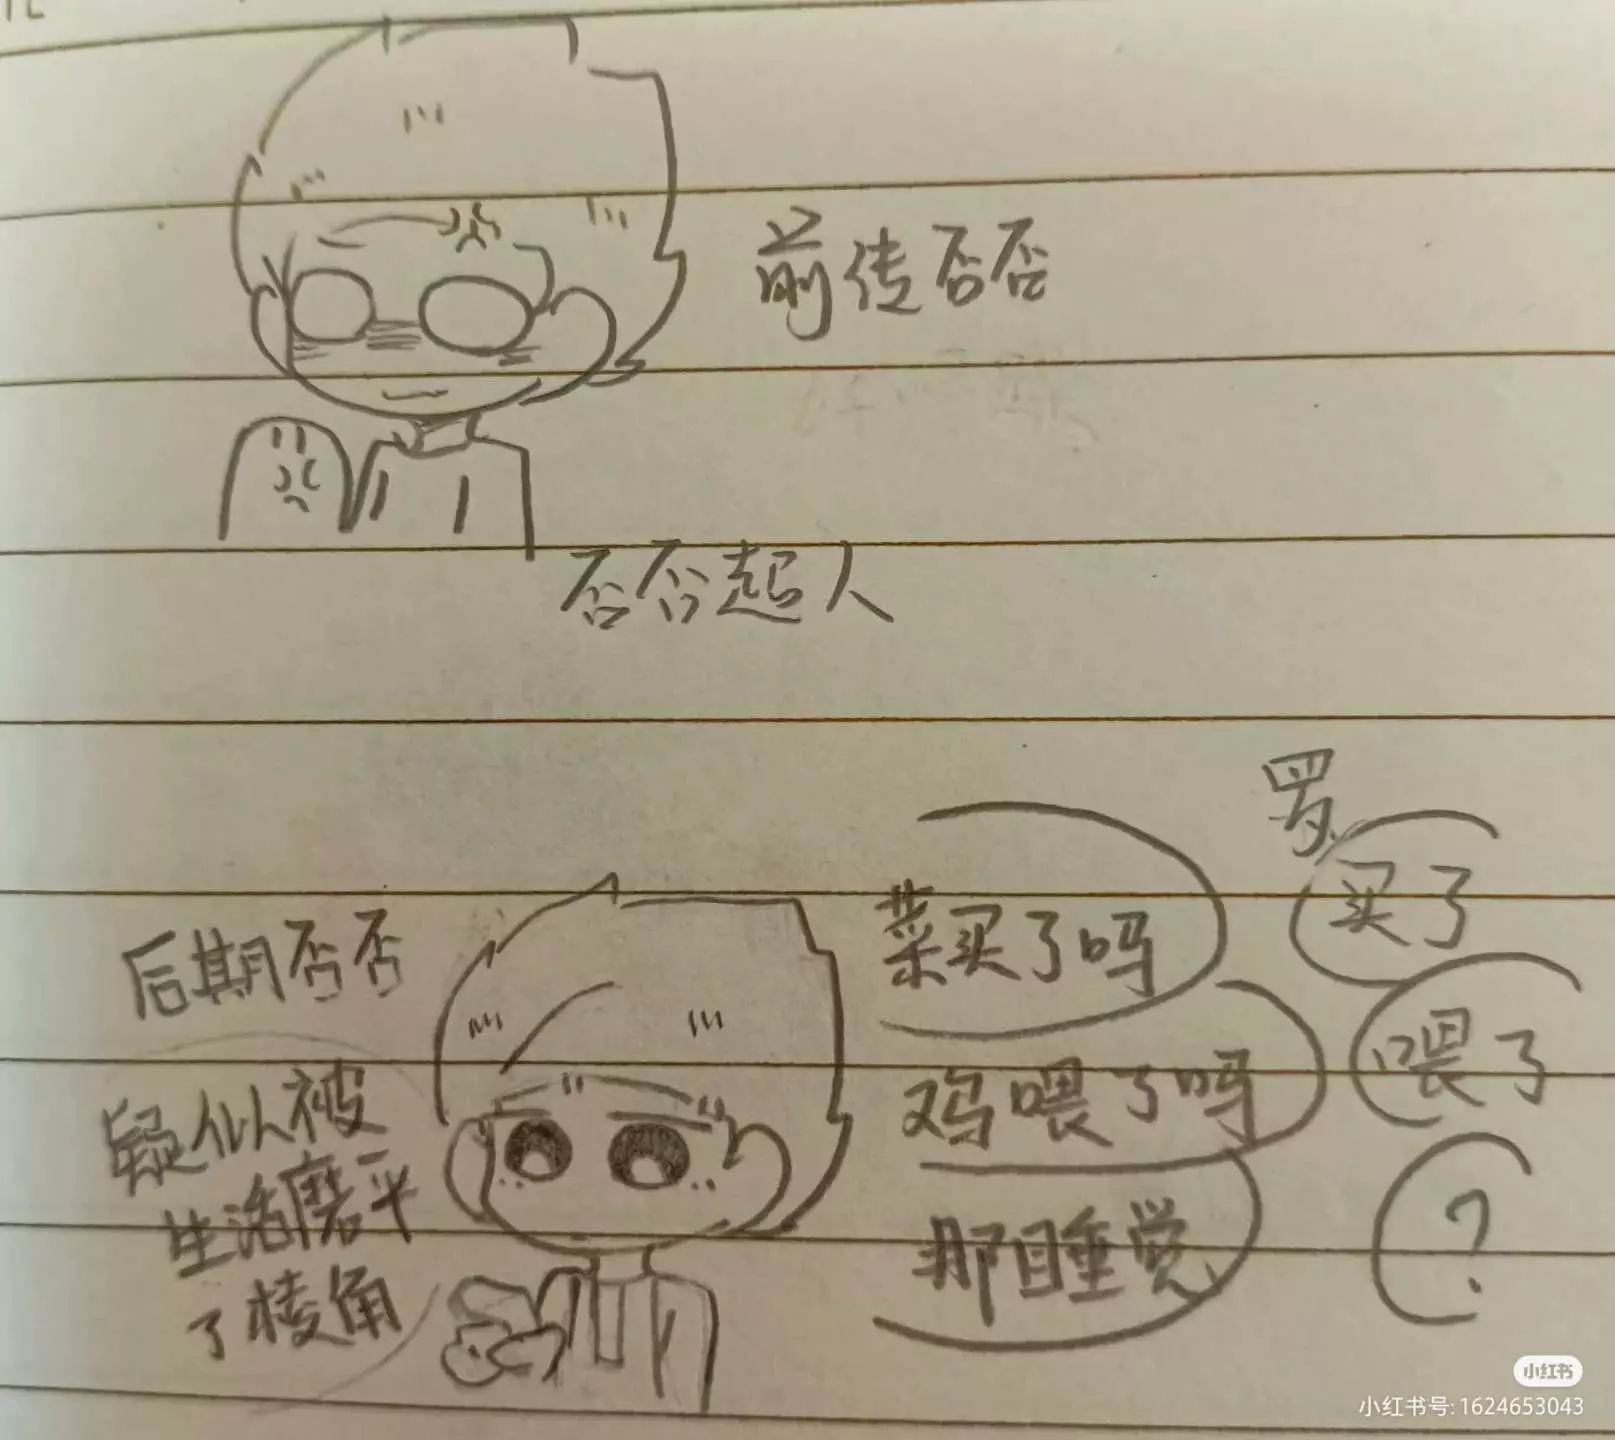 前传否否
否否超人
后期否否
疑似被
生活磨平
了棱角
菜买了吗
罗
买了
鸡喂了吗
喂了
那睡觉
?
小红书
小红书号:1624653043